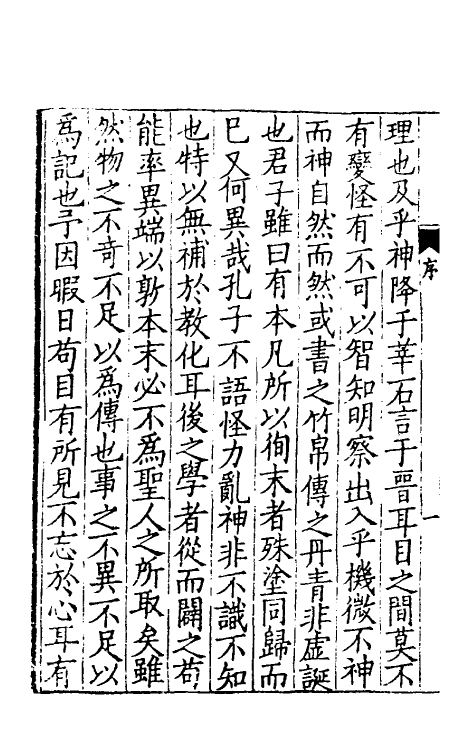 序
一
理也及乎神降于莘石言于晉耳目之間莫不
有變怪有不可以智知明察出入乎機微不神
而神自然而然或書之竹帛傳之丹青非虛誕
也君子雖曰有本凡所以徇末者殊塗同歸而
巳又何異哉孔子不語怪力亂神非不識不知
也特以無補於教化耳後之學者從而闢之苟
能率異端以敦本末必不爲聖人之所取矣雖
然物之不奇不足以爲傳也事之不異不足以
爲記也予因暇日苟目有所見不忘於心耳有